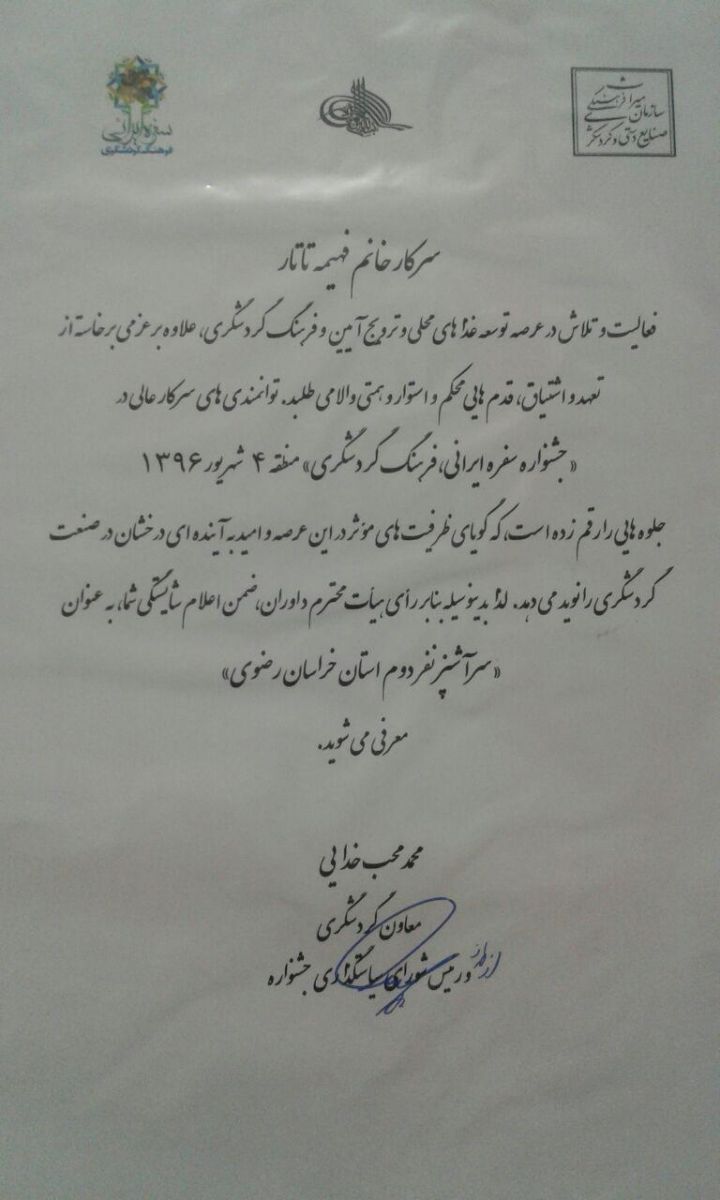 سازمان میراث فرهنگی
صنایع دستی و گردشگری
سفره ایرانی
فرهنگ گردشگری
سرکار خانم فهیمه تاتار
فعالیت و تلاش در عرصه توسعه غذاهای محلی و ترویج آیین و فرهنگ گردشگری، علاوه بر عزمی برخاسته از
تعهد و اشتیاق، قدم هایی محکم و استوار و همتی والا می طلبد. توانمندی های سرکار عالی در
«جشنواره سفره ایرانی، فرهنگ گردشگری» منطقه ۴ شهریور ۱۳۹۶
جلوه هایی را رقم زده است، که گویای ظرفیت های مؤثر در این عرصه و امید به آینده ای درخشان در صنعت
گردشگری را نوید می دهد. لذا بدینوسیله بنابر رأی هیأت محترم داوران، ضمن اعلام شایستگی شما، به عنوان
«سرآشپز نفر دوم استان خراسان رضوی»
معرفی می شوید.
محمد محب خدایی
معاون گردشگری
و رییس شورای سیاستگذاری جشنواره